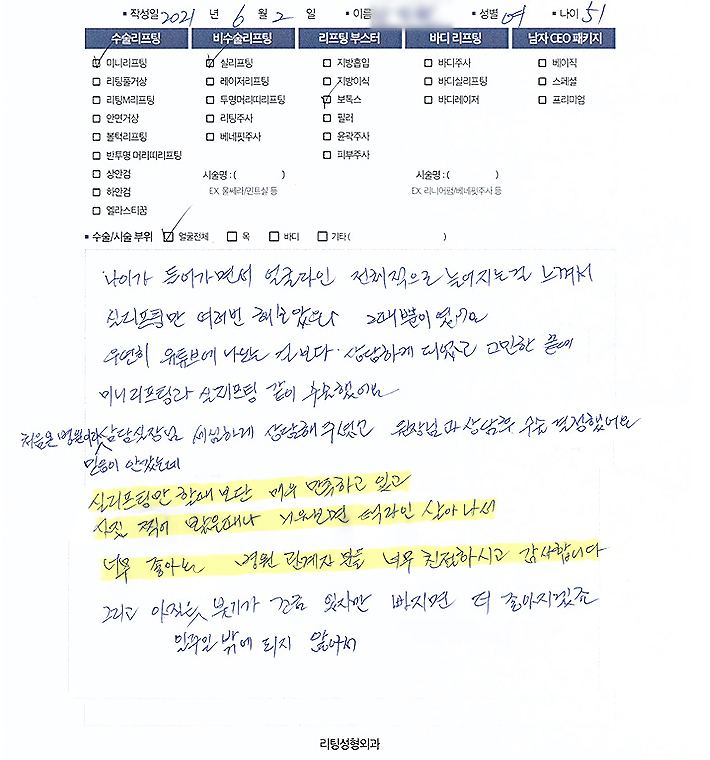 작성일 2021 년 6 월 2 일 이름 성별 여 나이 51
수술리프팅 비수술리프팅 리프팅 부스터 바디 리프팅 남자 CEO 패키지
미니리프팅 실리프팅 지방흡입 바디주사 베이직
리팅풀거상 레이저리프팅 지방이식 바디실리프팅 스페셜
리팅M리프팅 투명머리띠리프팅 보톡스 바디레이저 프리미엄
안면거상 리팅주사 필러
볼턱리프팅 베네핏주사 윤곽주사
반투명 머리띠리프팅 피부주사
상안검 시술명 : ( ) 시술명 : ( )
하안검 EX. 울쎄라/민트실 등 EX. 리니어펌/베네핏주사 등
엘라스티꿈
수술/시술 부위 얼굴전체 목 바디 기타 ( )
나이가 들어가면서 얼굴라인 전체적으로 늘어지는걸 느껴서
실리프팅만 여러번 해보았으나 그때뿐이였구요
우연히 유튜브에 나오는 걸보다 상담하게 되었고 고민한 끝에
미니리프팅과 실리프팅 같이 수술했어요
처음온 병원이라 상담실장님 세심하게 상담해주셨고 원장님과 상담후 수술 결정했어요
믿음이 안갔는데
실리프팅만 할때 보단 매우 만족하고 있고
사진 찍어 봤을때나 거울보면 턱라인 살아나서
너무 좋아요 병원 관계자 분들 너무 친절하시고 감사합니다
그리고 아직은 붓기가 조금 있지만 빠지면 더 좋아지겠죠
일주일 밖에 되지 않아서
리팅성형외과